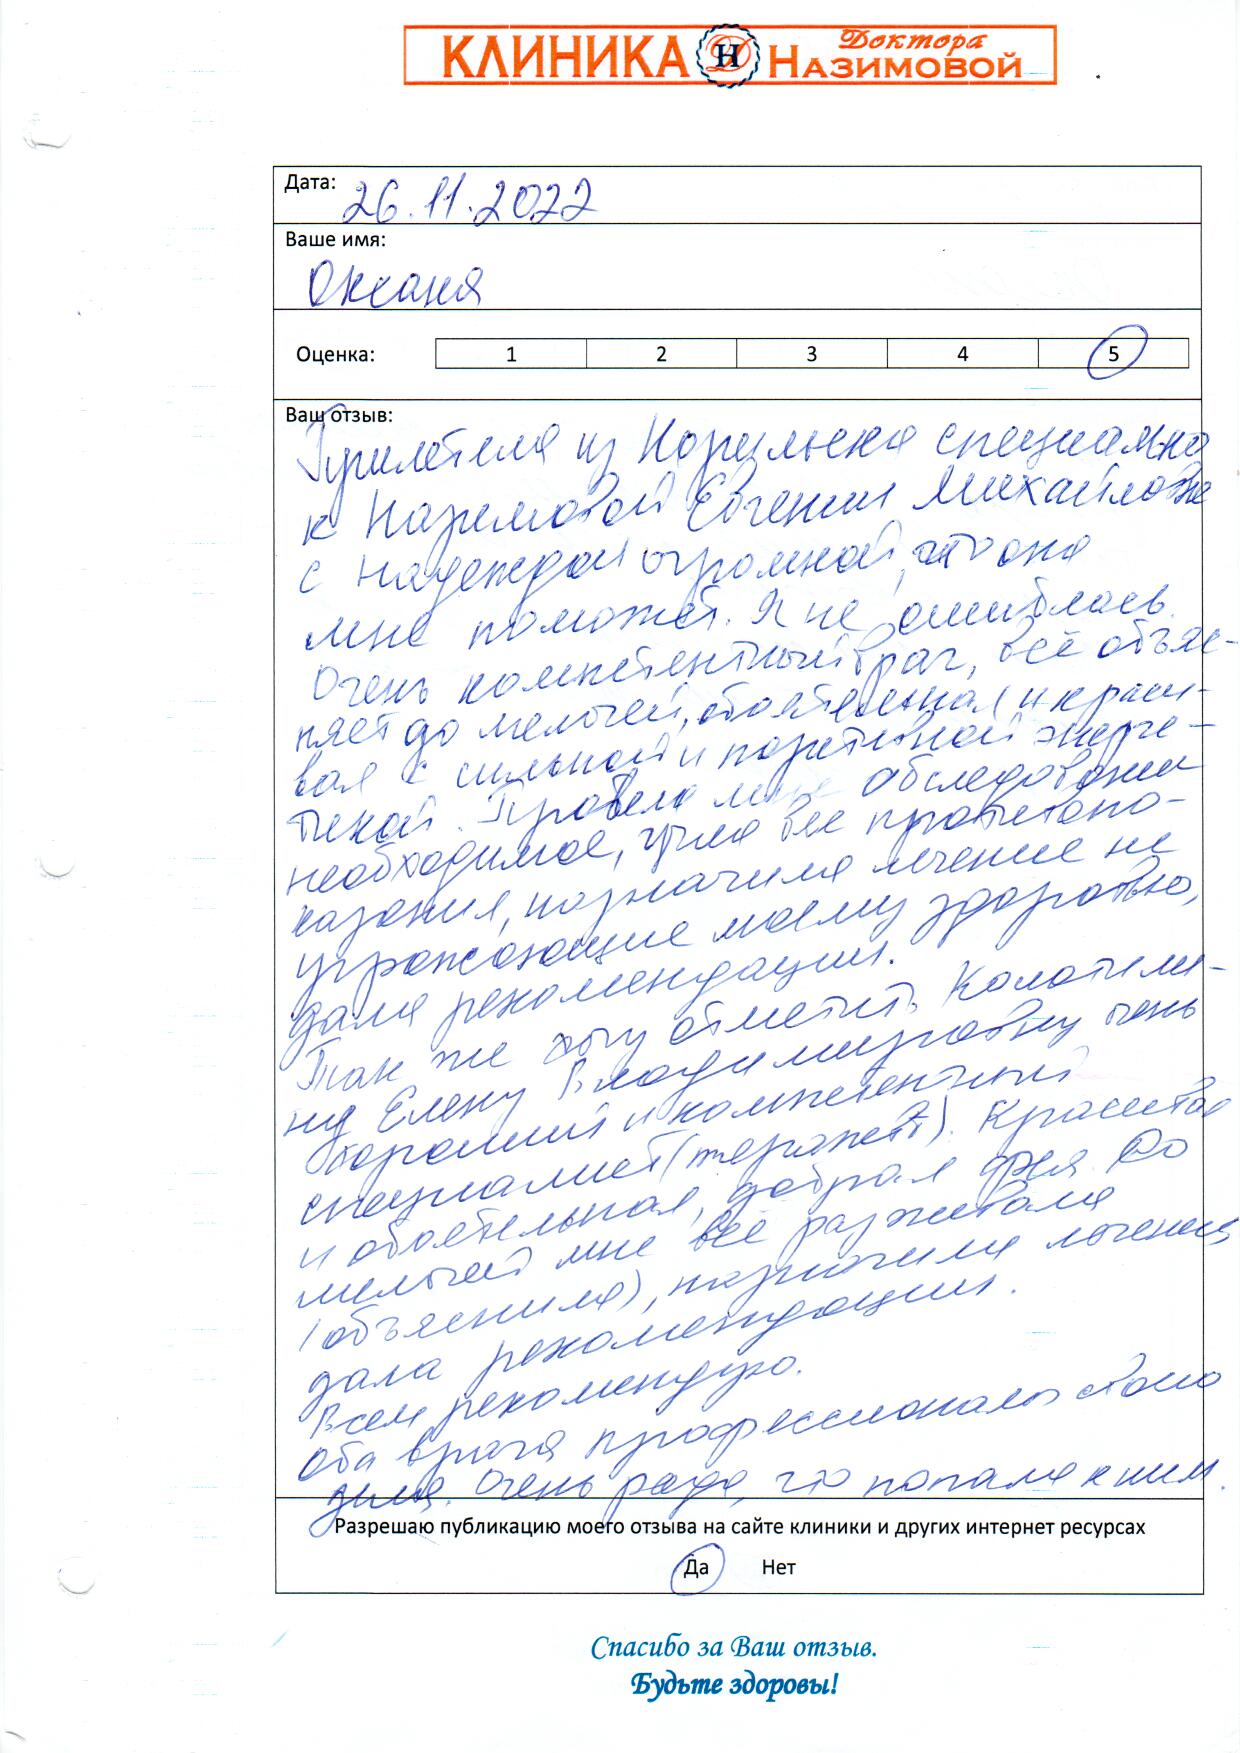 КЛИНИКА Доктора Назимовой
Дата: 26.11.2022
Ваше имя:
Оксана
Оценка: 1 2 3 4 5
Ваш отзыв:
Прилетела из Норильска специально
к Назимовой Евгении Михайловне
с надеждой огромной, что она
мне поможет. Я не ошиблась.
Очень компетентный врач, всё объяс-
няет до мелочей, обоятельная и краси-
вая с сильной и позитивной энерге-
тикой. Провела мне обследования
необходимое, учла все протевопо-
казания, назначила лечение не
угрожающие моему здоровью,
дала рекомендации.
Так же хочу отметить Колотили-
ну Елену Владимировну очень
хороший и компетентный
специалист (терапевт). Красивая
и обоятельная, добрая фея. До
мелочей мне всё разжевала
(объяснила), назначила лечение,
дала рекомендации.
Всем рекомендую.
Оба врача профессионалы своего
дела. Очень рада, что попала к ним.
Разрешаю публикацию моего отзыва на сайте клиники и других интернет ресурсах
Да Нет
Спасибо за Ваш отзыв.
Будьте здоровы!